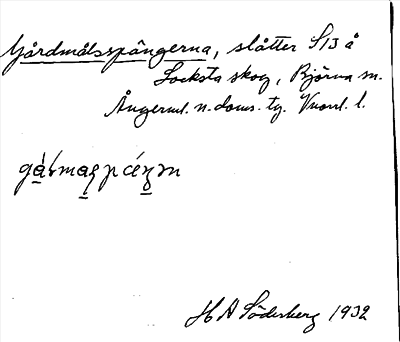 Gårdmålsspångerna, slåtter S13 å
Locksta skog, Björna sn.
Ångerml. n. doms. tg. Vnorrl. l.
H A Söderberg 1932